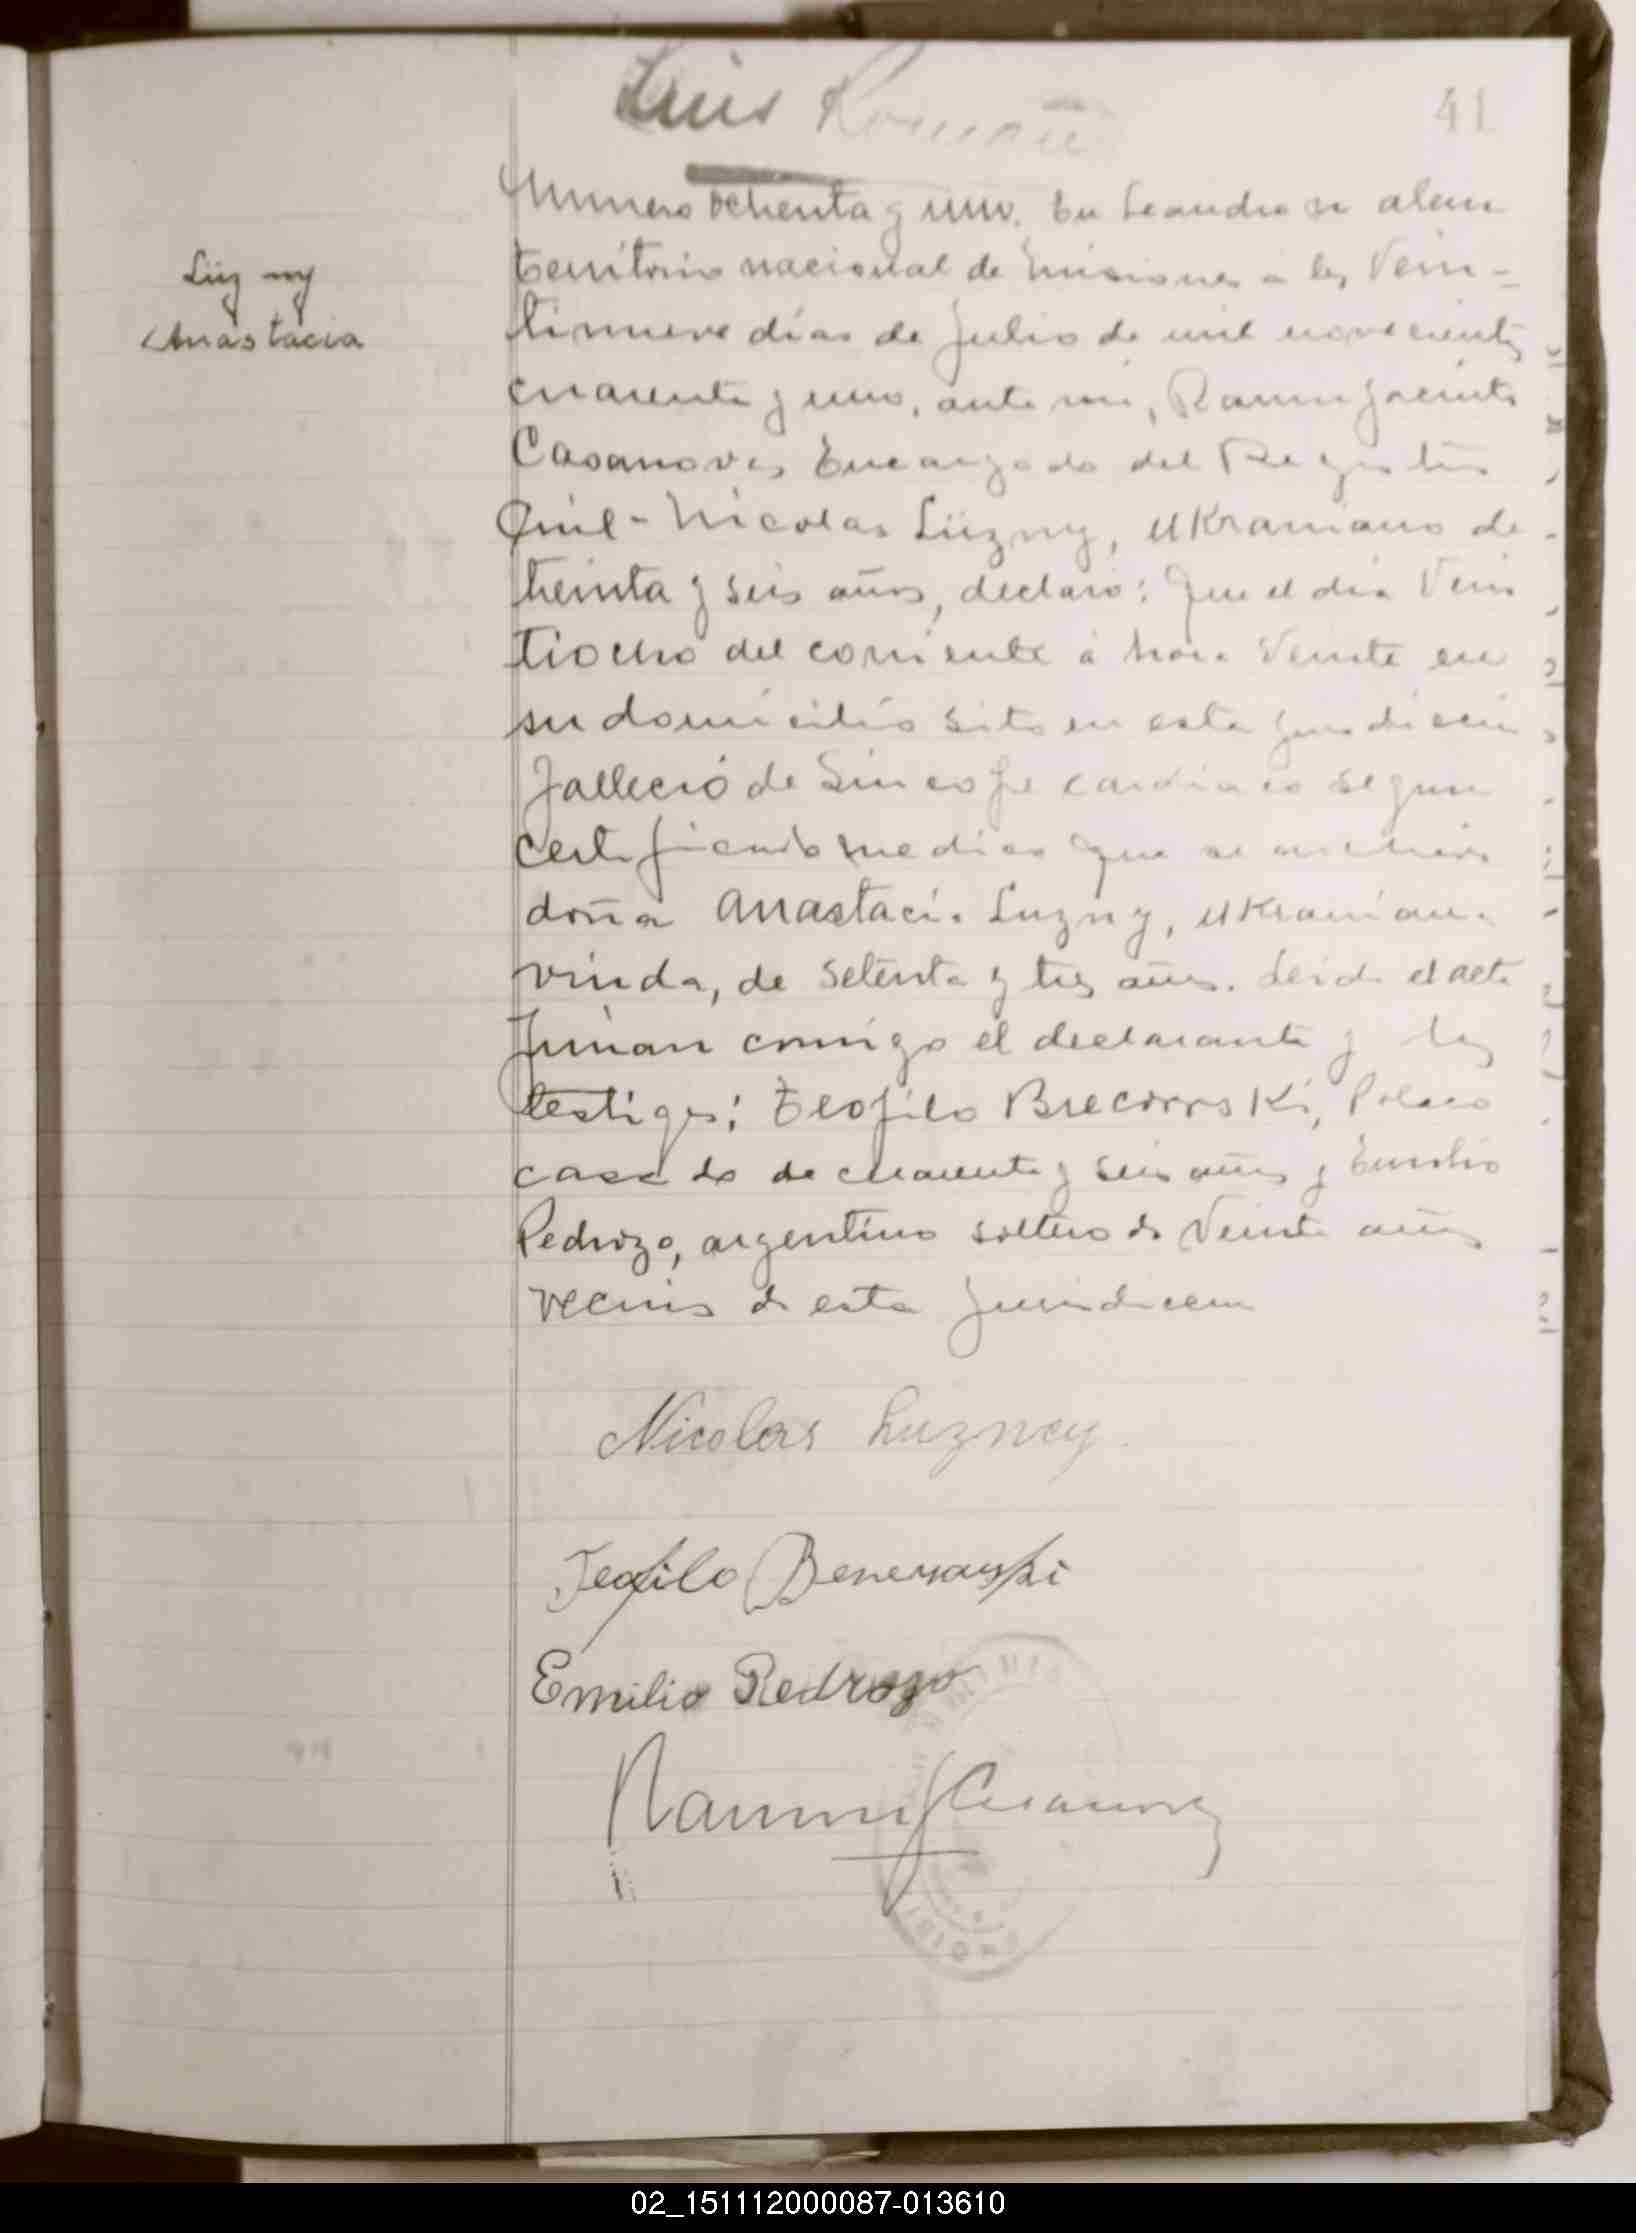 Luis Roman
41
Luzny
Anastacia
Numero ochenta y uno. En Leandro N alem
territorio nacional de Misiones a los Vein-
tinueve dias de Julio de mil novecientos
cuarenta y uno, ante mi, Ramon Jacinto
Casanovas Encargado del Registro
Civil - Nicolas Luzny, ukraniano de
treinta y seis años, declaró: Que el dia Vein
tiocho del corriente á hora Veinte en
su domicilio sito en esta jurisdiccion
falleció de Sincope cardiaco segun
certificado medico que se archiva
doña Anastacia Luzny, ukraniana
viuda, de setenta y tres años. Leida el acta
firman conmigo el declarante y los
testigos: Teofilo Brecorrski, Polaco
casado de cuarenta y seis años y Emilio
Pedrozo, argentino soltero de Veinte años
vecinos de esta jurisdiccion
Nicolas Luzney
Teofilo
Emilio Pedrozo
Ramon J Casanovas
02_151112000087-013610